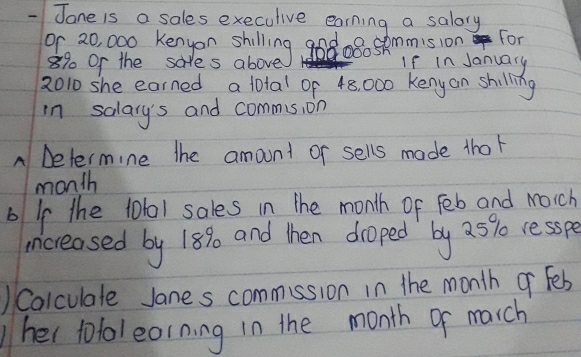 - Jane is a sales executive earning a salary
of 20,000 Kenyan shilling and a commision for
8% of the sales above 100 000sh if in January
2010 she earned a total of 48,000 kenyan shilling
in salary's and commision
a Determine the amount of sells made that
month
b If the total sales in the month of Feb and march
increased by 18% and then droped by 25% resspe
) Calculate Janes commission in the month of Feb
) her total earning in the month of march